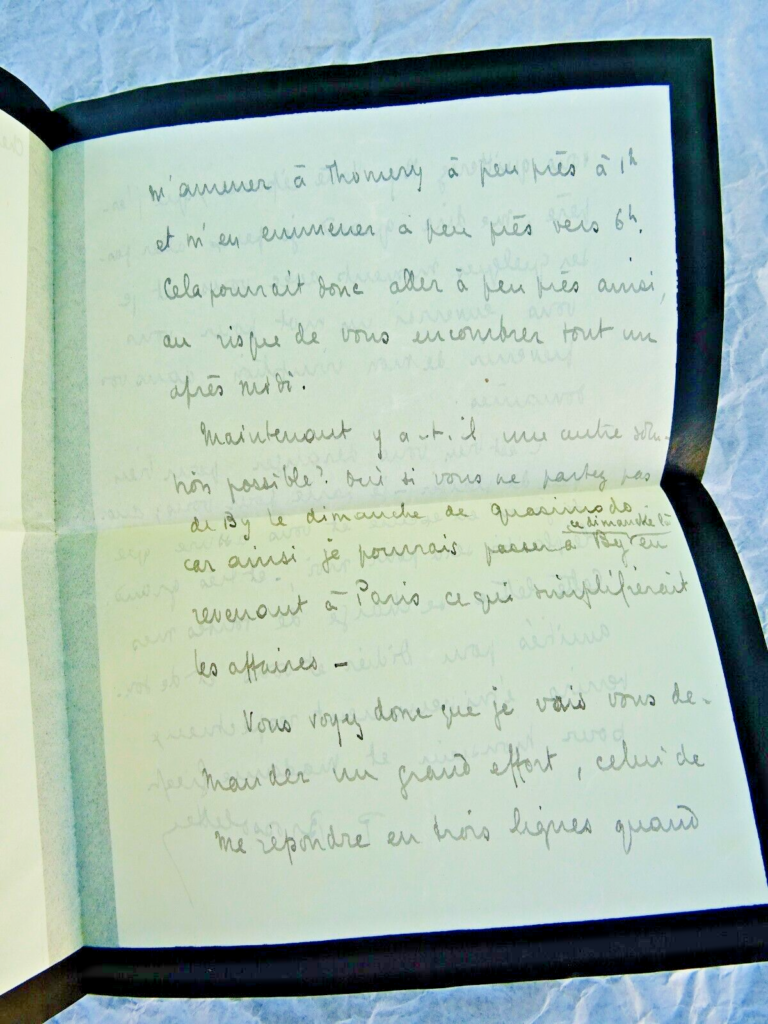 m'amener à Thomery à peu près à 1h
et m'en emmener à peu près vers 6h.
Cela pourrait donc aller à peu près ainsi,
au risque de vous encombrer tout un
après midi.
Maintenant y a-t-il une autre solu-
tion possible? Oui si vous ne partez pas
de By le dimanche de quasimodo
ce dimanche là
car ainsi je pourrais passer à By en
revenant à Paris ce qui simplifierait
les affaires -
Vous voyez donc que je vais vous de-
mander un grand effort, celui de
me répondre en trois lignes quand